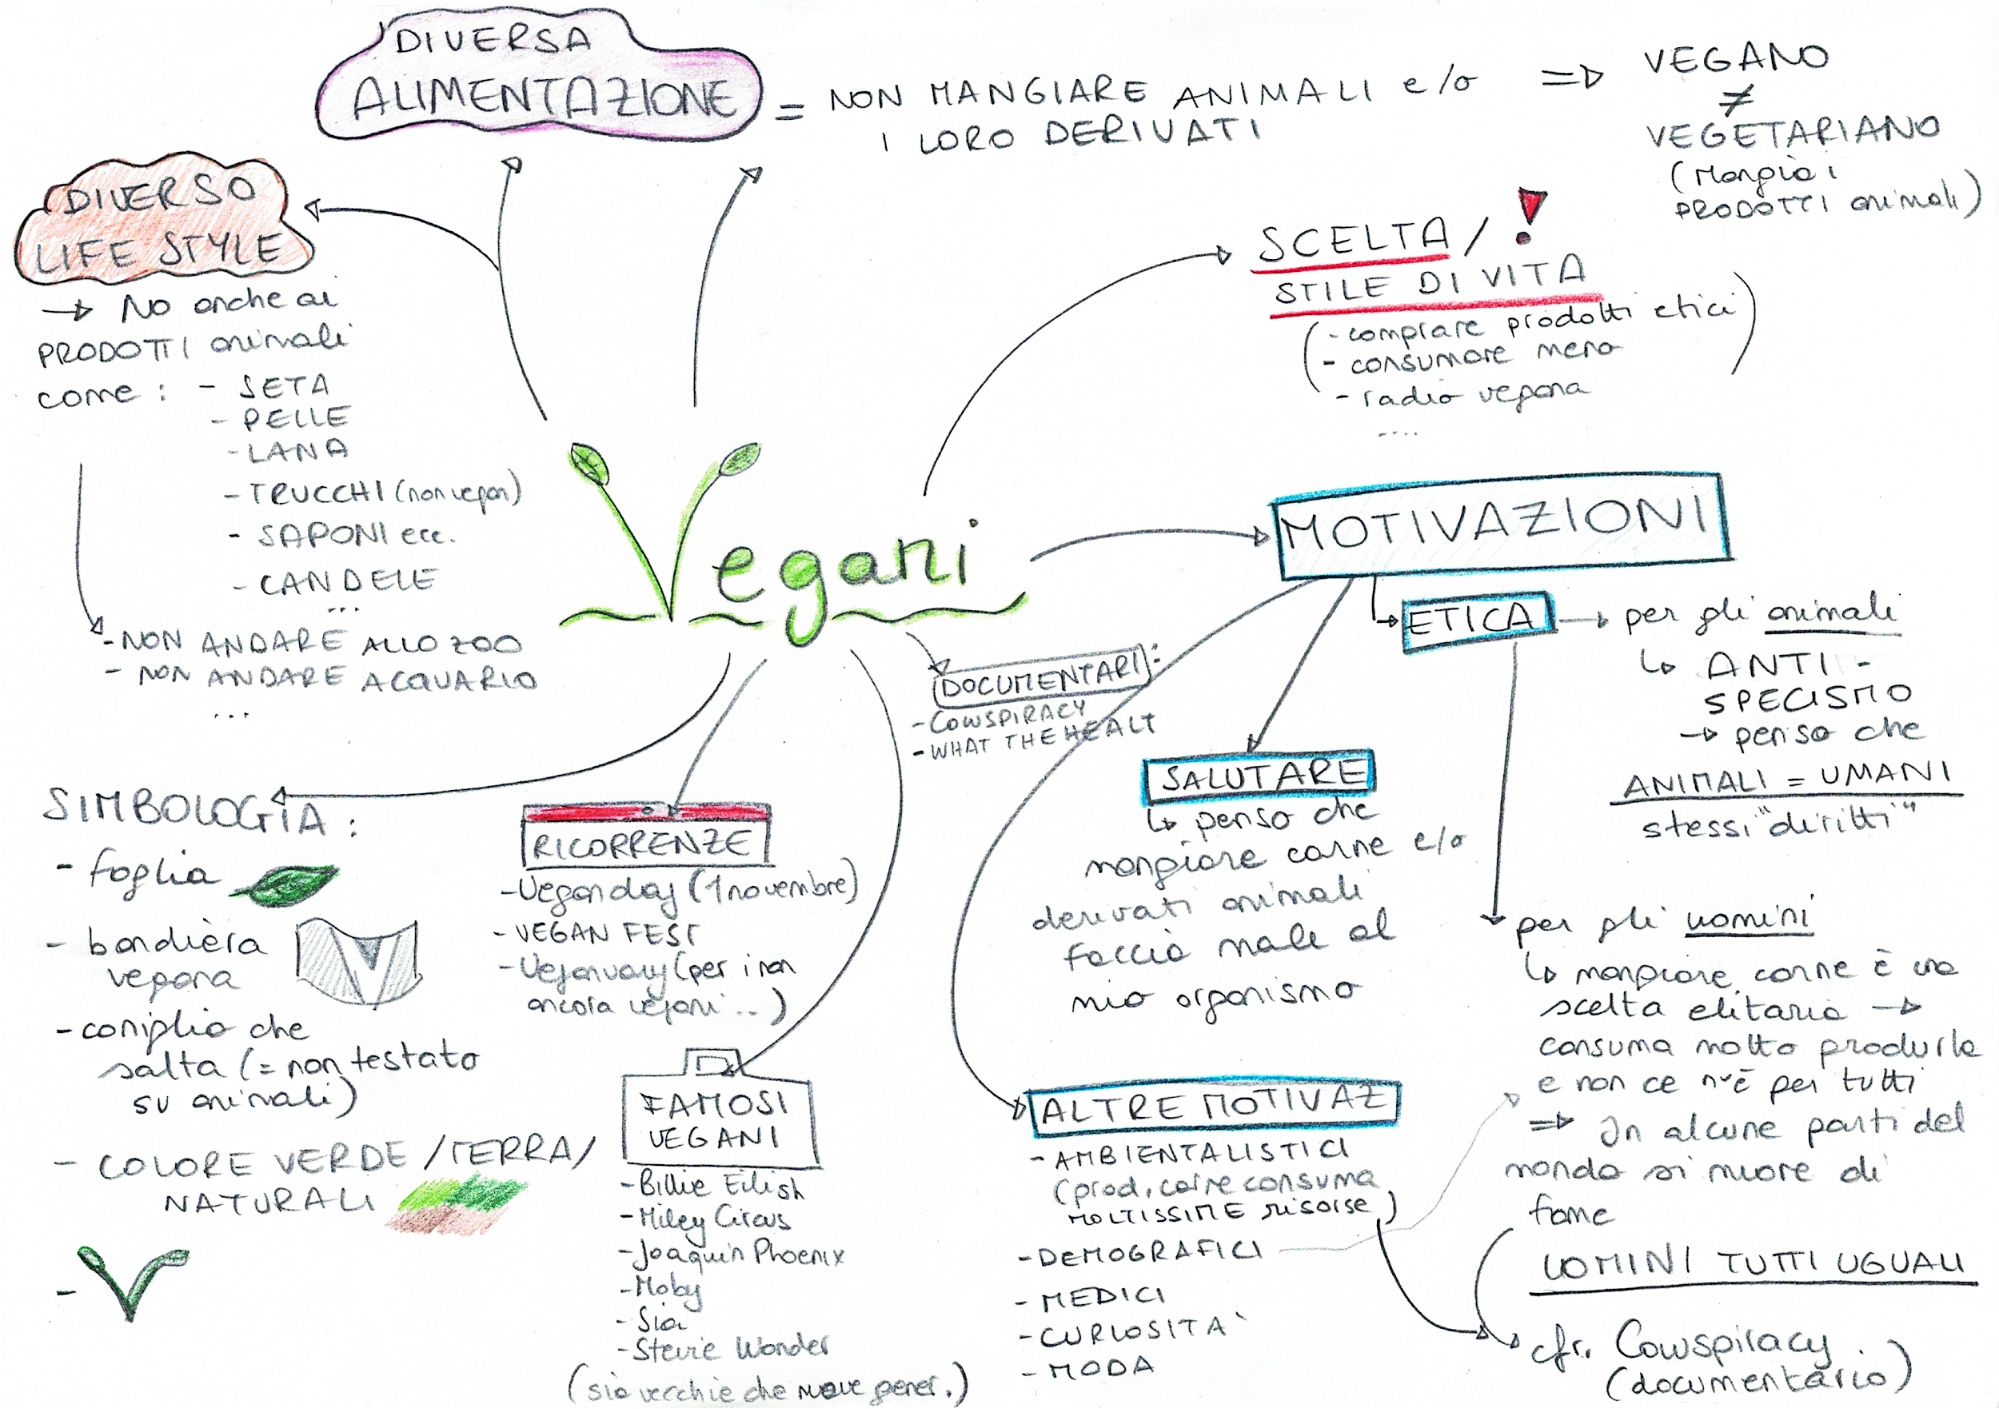 DIVERSA
ALIMENTAZIONE
= NON MANGIARE ANIMALI e/o
I LORO DERIVATI
=> VEGANO
≠
VEGETARIANO
(Mangia i
PRODOTTI animali)
DIVERSO
LIFE STYLE
→ No anche ai
PRODOTTI animali
come : - SETA
- PELLE
- LANA
- TRUCCHI (non vegan)
- SAPONI ecc.
- CANDELE
...
- NON ANDARE ALLO ZOO
- NON ANDARE ACQUARIO
...
SCELTA / !
STILE DI VITA
(- comprare prodotti etici)
- consumare meno
- radio vegana
....
Vegani
MOTIVAZIONI
ETICA → per gli animali
↳ ANTI -
SPECISMO
→ penso che
ANIMALI = UMANI
stessi "diritti"
per gli uomini
↳ mangiare carne è una
scelta elitaria →
consuma molto produrla
e non ce n'è per tutti
=> In alcune parti del
mondo si muore di
fame
UOMINI TUTTI UGUALI
cfr. Cowspiracy
(documentario)
DOCUMENTARI :
- COWSPIRACY
- WHAT THE HEALT
SALUTARE
↳ penso che
mangiare carne e/o
derivati animali
faccia male al
mio organismo
ALTRE MOTIVAZ
- AMBIENTALISTICI
(prod. carne consuma
MOLTISSIME risorse)
- DEMOGRAFICI
- MEDICI
- CURIOSITA'
- MODA
SIMBOLOGIA :
- foglia
- bandièra
vegana
V
- coniglio che
salta (= non testato
su animali)
- COLORE VERDE /TERRA/
NATURALI
- V
RICORRENZE
- Vegan day (1 novembre)
- VEGAN FEST
- Veganuary (per i non
ancora vegani ...)
FAMOSI
VEGANI
- Billie Eilish
- Miley Cirus
- Joaquin Phoenix
- Moby
- Sia
- Stevie Wonder
(sia vecchie che nuove gener.)